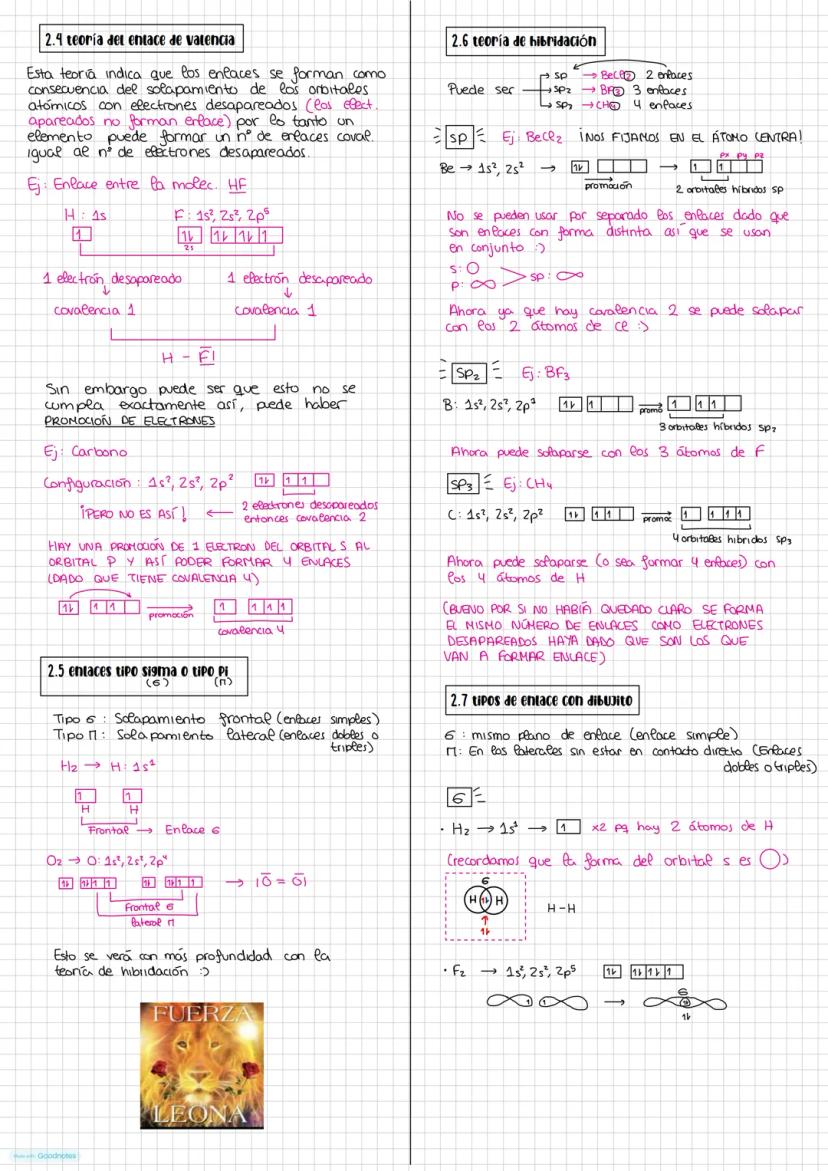 2.4 teoría del enlace de valencia
Esta teoría indica que los enlaces se forman como
consecuencia del solapamiento de los orbitales
atómicos con electrones desapareados (los elect.
apareados no forman enlace) por lo tanto un
elemento puede formar un nº de enlaces coval.
igual al nº de electrones desapareados.
Ej: Enlace entre la molec. HF
H: 1s F: 1s², 2s², 2p⁵
1 1↓ 1↓ 1↓ 1
2s
1 electrón desapareado 1 electrón desapareado
↓ ↓
covalencia 1 covalencia 1
H - F̅|
Sin embargo puede ser que esto no se
cumpla exactamente así, puede haber
PROMOCIÓN DE ELECTRONES
Ej: Carbono
Configuración: 1s², 2s², 2p² 1↓ 1 1
¡PERO NO ES ASÍ! ← 2 electrones desapareados
entonces covalencia 2
HAY UNA PROMOCIÓN DE 1 ELECTRON DEL ORBITAL S AL
ORBITAL P Y ASÍ PODER FORMAR 4 ENLACES
(DADO QUE TIENE COVALENCIA 4)
1↓ 1 1 → 1 1 1 1
promoción
covalencia 4
2.5 enlaces tipo sigma o tipo pi
(σ) (Π)
Tipo σ: Solapamiento frontal (enlaces simples)
Tipo Π: Solapamiento lateral (enlaces dobles o
triples)
H₂ → H: 1s¹
1 1
H H
Frontal → Enlace σ
O₂ → O: 1s², 2s², 2p⁴
1↓ 1↓ 1 1 1↓ 1↓ 1 1 → |O̅ = O̅|
Frontal σ
lateral Π
Esto se verá con más profundidad con la
teoría de hibridación :)
FUERZA
LEONA
Made with Goodnotes
2.6 teoría de hibridación
sp → BeCl₂ 2 enlaces
Puede ser → sp₂ → BF₃ 3 enlaces
sp₃ → CH₄ 4 enlaces
sp Ej: BeCl₂ ¡NOS FIJAMOS EN EL ÁTOMO CENTRA!
px py pz
Be → 1s², 2s² → 1↓ → 1 1
promoción 2 orbitales híbridos sp
No se pueden usar por separado los enlaces dado que
son enlaces con forma distinta así que se usan
en conjunto :)
s: ○
p: ∞ > sp: ∞
Ahora ya que hay covalencia 2 se puede solapar
con los 2 átomos de Cl :)
sp₂ Ej: BF₃
B: 1s², 2s², 2p¹ 1↓ 1 → 1 1 1
promo
3 orbitales híbridos sp₂
Ahora puede solaparse con los 3 átomos de F
sp₃ Ej: CH₄
C: 1s², 2s², 2p² 1↓ 1 1 → 1 1 1 1
promoc
4 orbitales híbridos sp₃
Ahora puede solaparse (o sea formar 4 enlaces) con
los 4 átomos de H
(BUENO POR SI NO HABÍA QUEDADO CLARO SE FORMA
EL MISMO NÚMERO DE ENLACES COMO ELECTRONES
DESAPAREADOS HAYA DADO QUE SON LOS QUE
VAN A FORMAR ENLACE)
2.7 tipos de enlace con dibujito
σ: mismo plano de enlace (enlace simple)
Π: En los laterales sin estar en contacto directo (Enlaces
dobles o triples)
σ
· H₂ → 1s¹ → 1 x2 pq hay 2 átomos de H
(recordamos que la forma del orbital s es ○)
σ
H 1↓ H H-H
↑
1↓
· F₂ → 1s², 2s², 2p⁵ 1↓ 1↓ 1↓ 1
σ
1 1 → 1↓
1↓